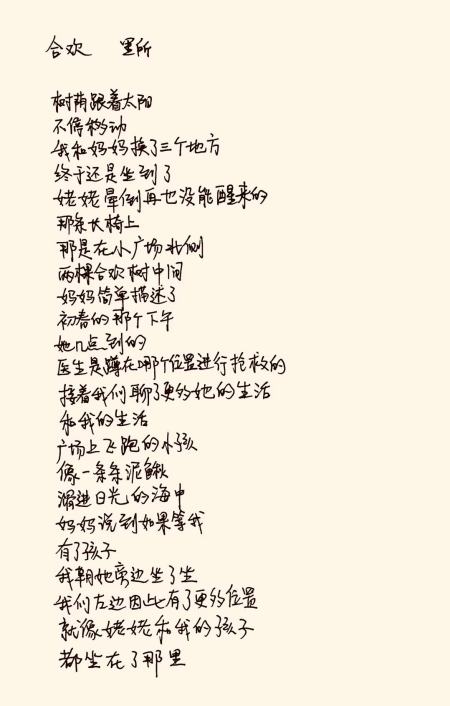 合欢 里所
树荫跟着太阳
不停移动
我和妈妈换了三个地方
终于还是坐到了
姥姥晕倒再也没能醒来的
那条长椅上
那是在小广场北侧
两棵合欢树中间
妈妈简单描述了
初春的那个下午
她几点到的
医生是蹲在哪个位置进行抢救的
接着我们聊了更多她的生活
和我的生活
广场上飞跑的小孩
像一条条泥鳅
溜进日光的海中
妈妈说到如果等我
有了孩子
我朝她旁边坐了坐
我们左边因此有了更多位置
就像姥姥和我的孩子
都坐在了那里